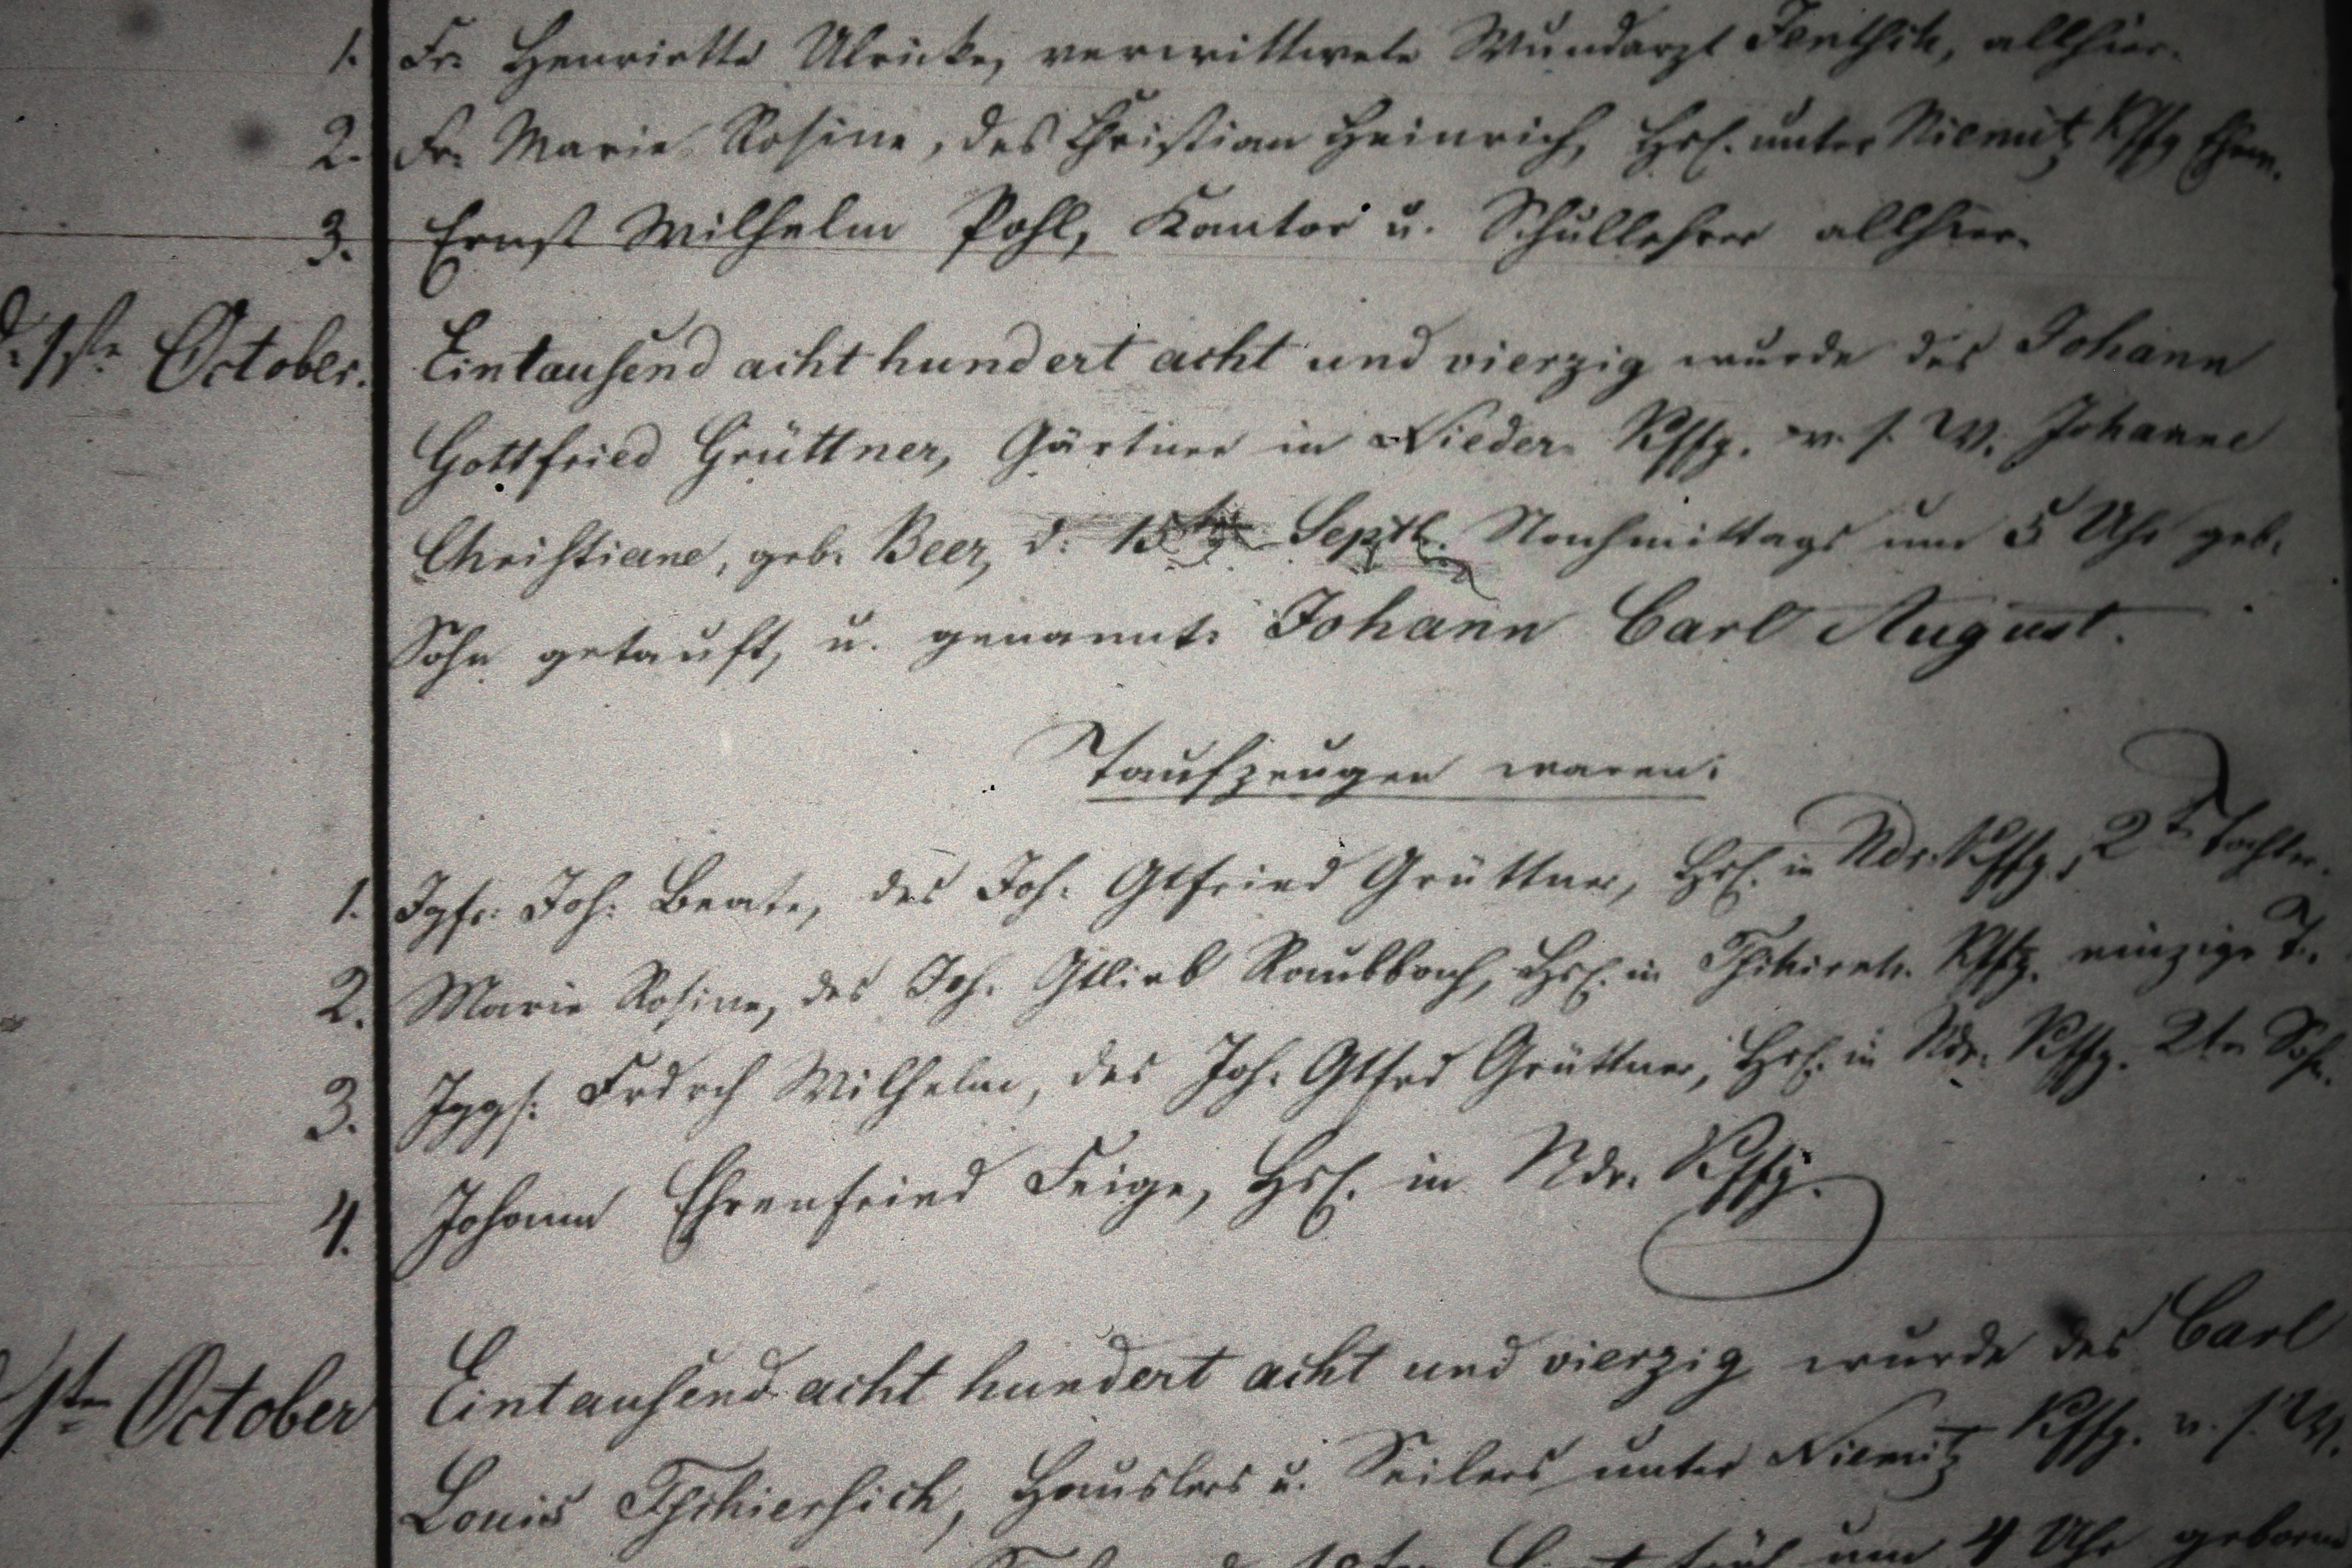 1. Fr. Henriette Ulricke, verwittwete Wundarzt Jentsch, allhier.
2. Fr. Marie Rosine, des Christian Heinrich, Hsl. unter Niemitz Kffg
3. Ernst Wilhelm Pohl, Kantor u. Schullehrer allhier.
d. 1ste October. Eintausend acht hundert acht und vierzig wurde des Johann
Gottfried Grüttner, Gärtner in Nieder Kffg. v. s. W. Johanne
Christiane, geb. Beer, d. 15 Septb. Nachmittags um 5 Uhr geb.
Sohn getauft, u. genannt: Johann Carl August.
Taufzeugen waren:
1. Jgfr. Joh: Beate, des Joh: Gtfried Grüttner, Hsl. in Ndr. Kffg. 2te Tochter.
2. Marie Rosine, des Joh. Gtlieb Raubbach, Hsl. in Kffg. einzige T.
3. Jggs: Frdrch Wilhelm, des Joh: Gtfrd Grüttner, Hsl. in Ndr. Kffg. 2ter Sohn.
4. Johann Ehrenfried Feige, Hsl. in Ndr. Kffg.
1ste October Eintausend acht hundert acht und vierzig wurde des Carl
Louis Tschiersich, Häuslers u. Seilers unter Niemitz Kffg. v. s. W.
früh um 4 Uhr geboren